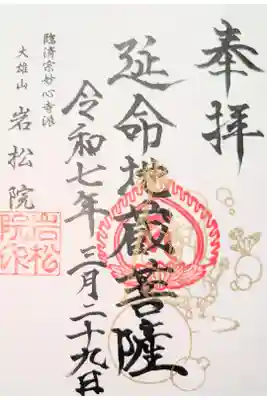 奉拝
延命地蔵菩薩
令和七年三月二十九日
臨済宗妙心寺派
大雄山 岩松院
岩松
院印